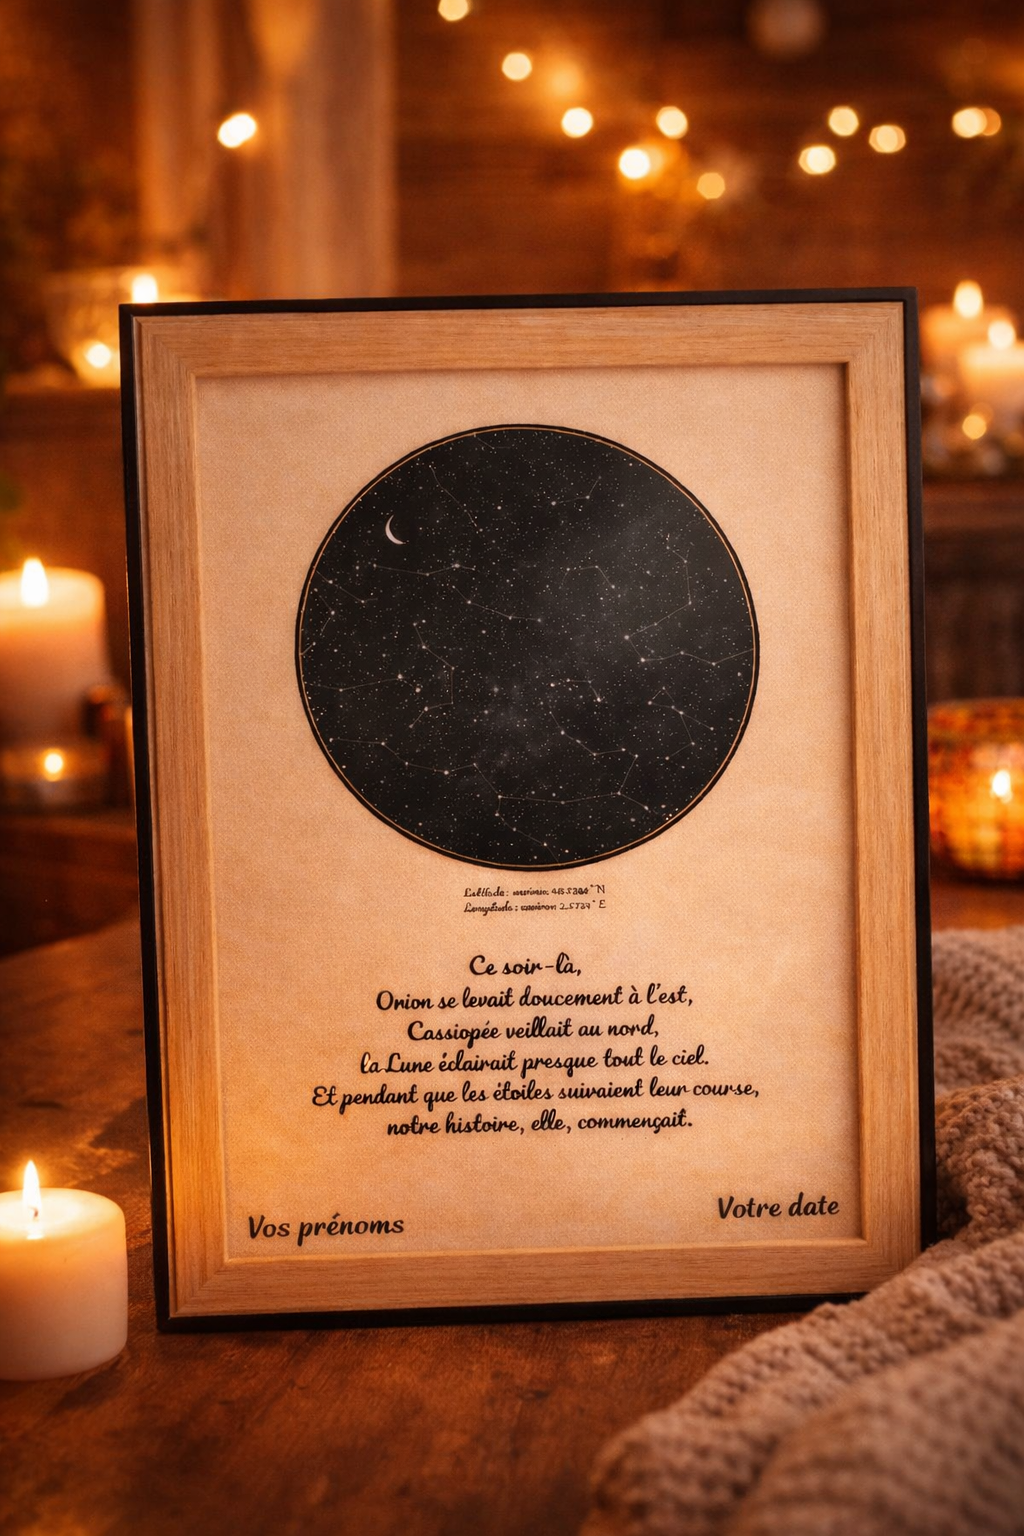 Ce soir-là,
Orion se levait doucement à l'est,
Cassiopée veillait au nord,
la Lune éclairait presque tout le ciel.
Et pendant que les étoiles suivaient leur course,
notre histoire, elle, commençait.
Vos prénoms
Votre date